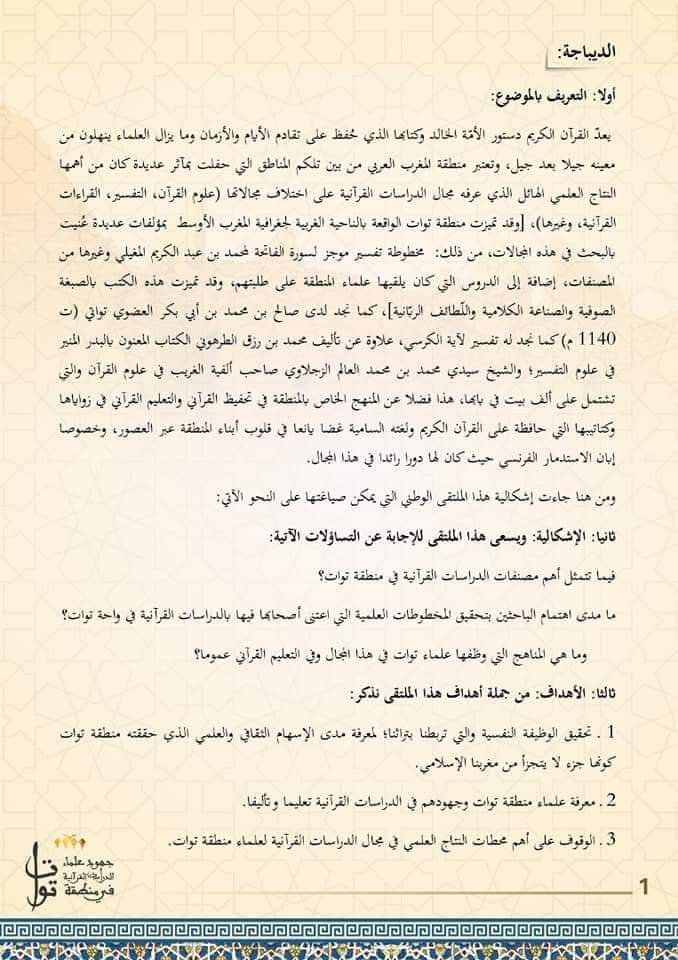 الديباجة:
أولا: التعريف بالموضوع:
يعدّ القرآن الكريم دستور الأمّة الخالد وكتابها الذي حُفظ على تقادم الأيام والأزمان وما يزال العلماء ينهلون من
معينه جيلا بعد جيل، وتعتبر منطقة المغرب العربي من بين تلكم المناطق التي حفلت بمآثر عديدة كان من أهمها
النتاج العلمي الهائل الذي عرفه مجال الدراسات القرآنية على اختلاف مجالاتها (علوم القرآن، التفسير، القراءات
القرآنية، وغيرها)، [وقد تميزت منطقة توات الواقعة بالناحية الغربية لجغرافية المغرب الأوسط بمؤلفات عديدة عُنيت
بالبحث في هذه المجالات، من ذلك: مخطوطة تفسير موجز لسورة الفاتحة لمحمد بن عبد الكريم المغيلي وغيرها من
المصنفات، إضافة إلى الدروس التي كان يلقيها علماء المنطقة على طلبتهم، وقد تميزت هذه الكتب بالصبغة
الصوفية والصناعة الكلامية واللّطائف الربّانية]، كما نجد لدى صالح بن محمد بن أبي بكر العضوي تواتي (ت
1140 م) كما نجد له تفسير لآية الكرسي، علاوة عن تأليف محمد بن رزق الطرهوني الكتاب المعنون بالبدر المنير
في علوم التفسير؛ والشيخ سيدي محمد بن محمد العالم الزجلاوي صاحب ألفية الغريب في علوم القرآن والتي
تشتمل على ألف بيت في بابها، هذا فضلا عن المنهج الخاص بالمنطقة في تحفيظ القرآني والتعليم القرآني في زواياها
وكتاتيبها التي حافظة على القرآن الكريم ولغته السامية غضا يانعا في قلوب أبناء المنطقة عبر العصور، وخصوصا
إبان الاستدمار الفرنسي حيث كان لها دورا رائدا في هذا المجال.
ومن هنا جاءت إشكالية هذا الملتقى الوطني التي يمكن صياغتها على النحو الآتي:
ثانيا: الإشكالية: ويسعى هذا الملتقى للإجابة عن التساؤلات الآتية:
فيما تتمثل أهم مصنفات الدراسات القرآنية في منطقة توات؟
ما مدى اهتمام الباحثين بتحقيق المخطوطات العلمية التي اعتنى أصحابها فيها بالدراسات القرآنية في واحة توات؟
وما هي المناهج التي وظفها علماء توات في هذا المجال وفي التعليم القرآني عموما؟
ثالثا: الأهداف: من جملة أهداف هذا الملتقى نذكر:
1 . تحقيق الوظيفة النفسية والتي تربطنا بتراثنا؛ لمعرفة مدى الإسهام الثقافي والعلمي الذي حققته منطقة توات
كونها جزء لا يتجزأ من مغربنا الإسلامي.
2 . معرفة علماء منطقة توات وجهودهم في الدراسات القرآنية تعليما وتأليفا.
3 . الوقوف على أهم محطات النتاج العلمي في مجال الدراسات القرآنية لعلماء منطقة توات.
جهود علماء
الدراسات القرآنية
في منطقة
توات
1